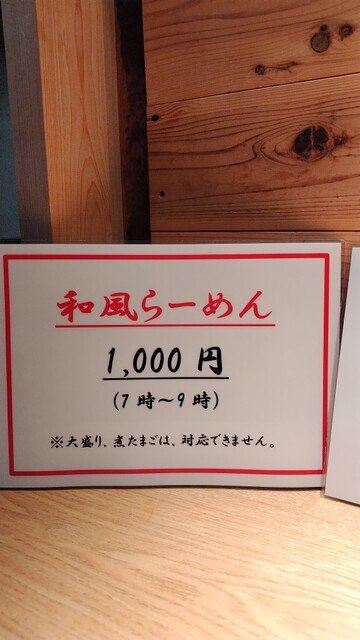 和風らーめん
1,000 円
(7 時～9 時)
※大盛り、煮たまごは、対応できません。